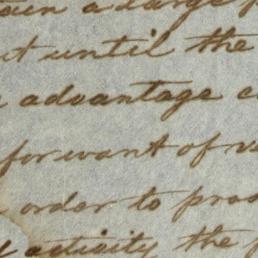 a large
until the
advantage
for want of
order to
activity the